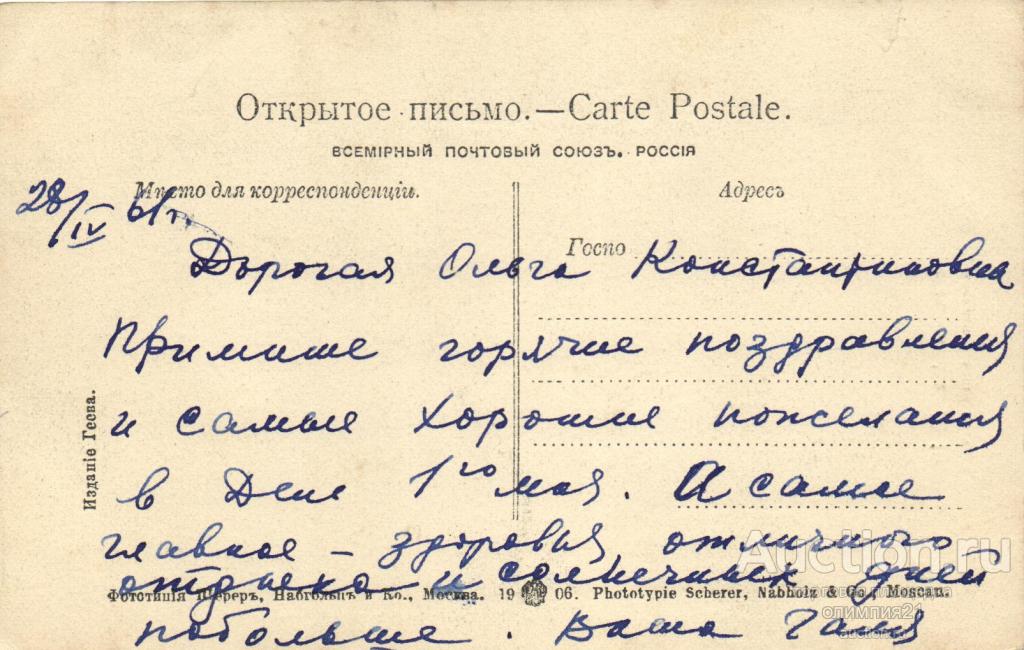 Открытое письмо.—Carte Postale.
ВСЕМІРНЫЙ ПОЧТОВЫЙ СОЮЗЪ. РОССІЯ
Мѣсто для корреспонденціи.
Адресъ
28/IV 61 г.
Госпо
Дорогая Ольга Константиновна
Примите горячие поздравления
и самые хорошие пожелания
в День 1го мая. А самое
главное – здоровья, отличного
отдыха и солнечных дней
побольше. Ваша Галя
Изданіе Геева.
Фототипія Шереръ, Набгольцъ и Ко., Москва. 19 06. Phototypie Scherer, Nabholz & Co., Moscau.
Auction.ru
олимпия21
auction.ru